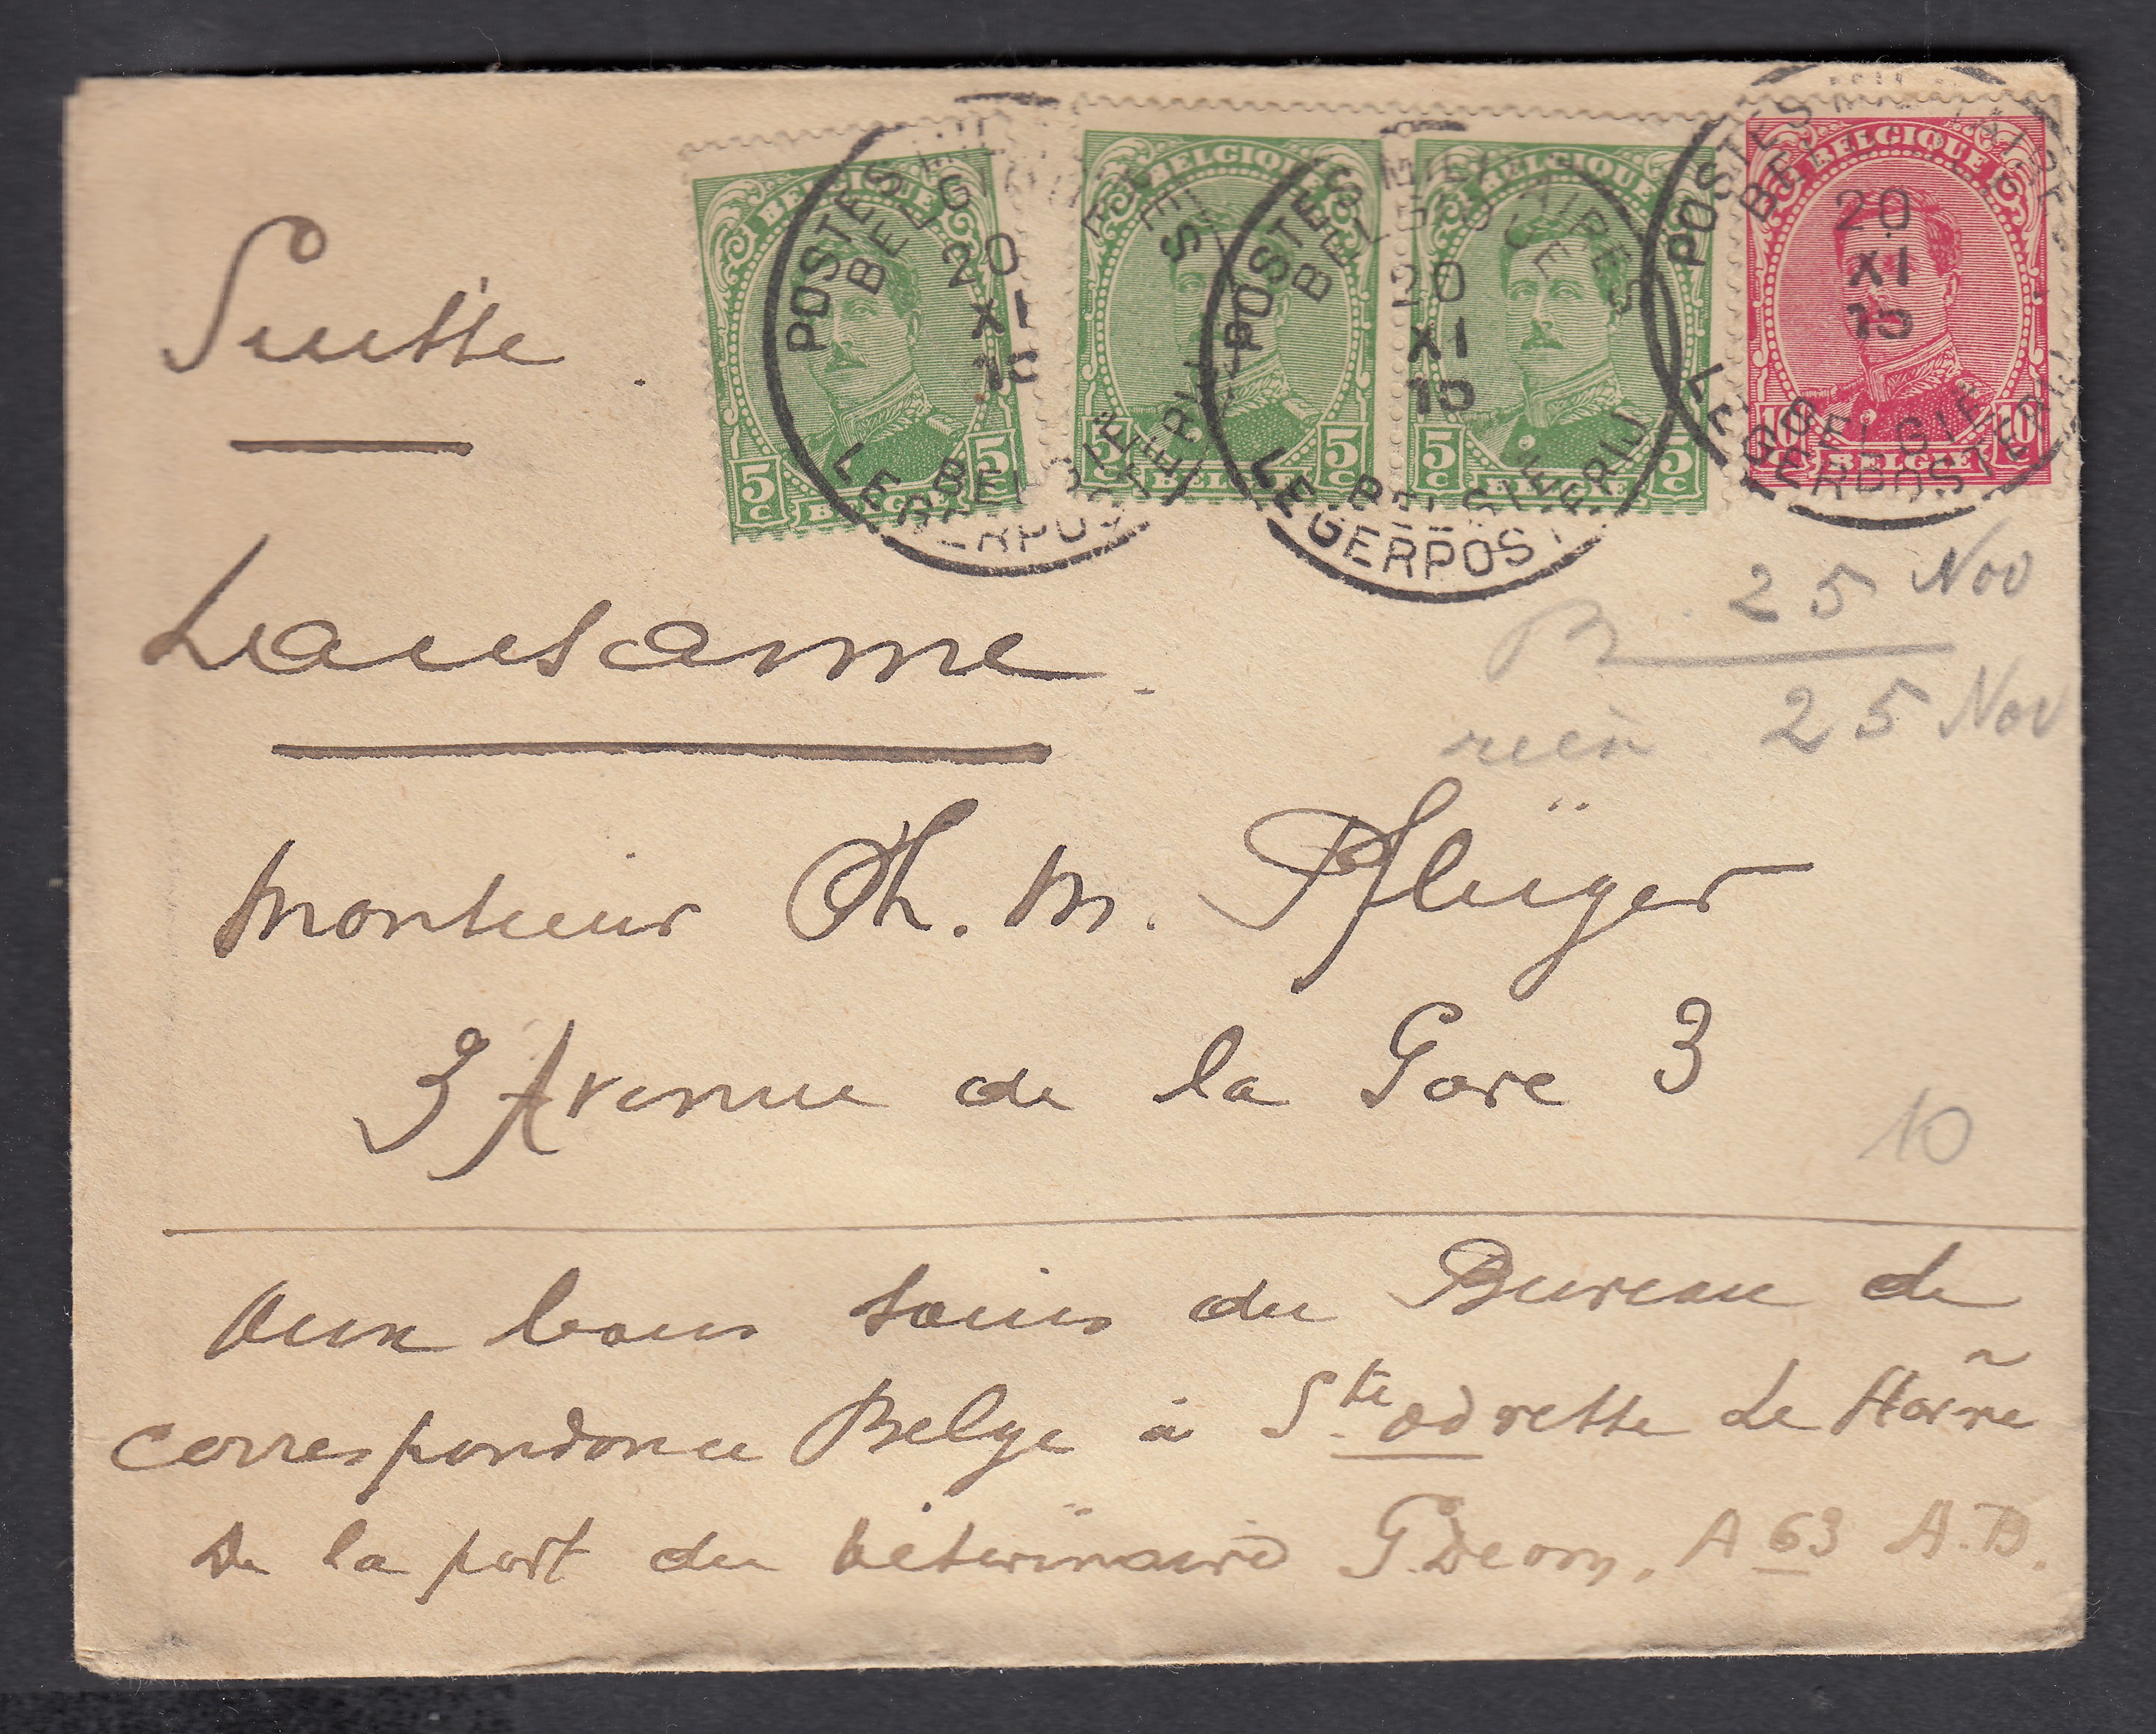 BELGIQUE BELGIQUE BELGIQUE BELGIQUE
5c 5c 5c 5c 5c 5c 10 10
BELGIE BELGIE BELGIE BELGIE
POSTES MILITAIRES
BELGIQUE
20
XI
15
BELGIE
LEGERPOSTERIJ
POSTES MILITAIRES
BELGIQUE
20
XI
15
BELGIE
LEGERPOSTERIJ
POSTES MILITAIRES
BELGIQUE
20
XI
15
BELGIE
LEGERPOSTERIJ
Suisse
Lausanne.
R. 25 Nov
25 Nov
Monsieur Th. M. Pflüger
3 Avenue de la Gare 3
10
Aux bons soins du Bureau de
correspondance Belge à Ste adresse Le Havre
De la part du vétérinaire G. A 63 A.D.